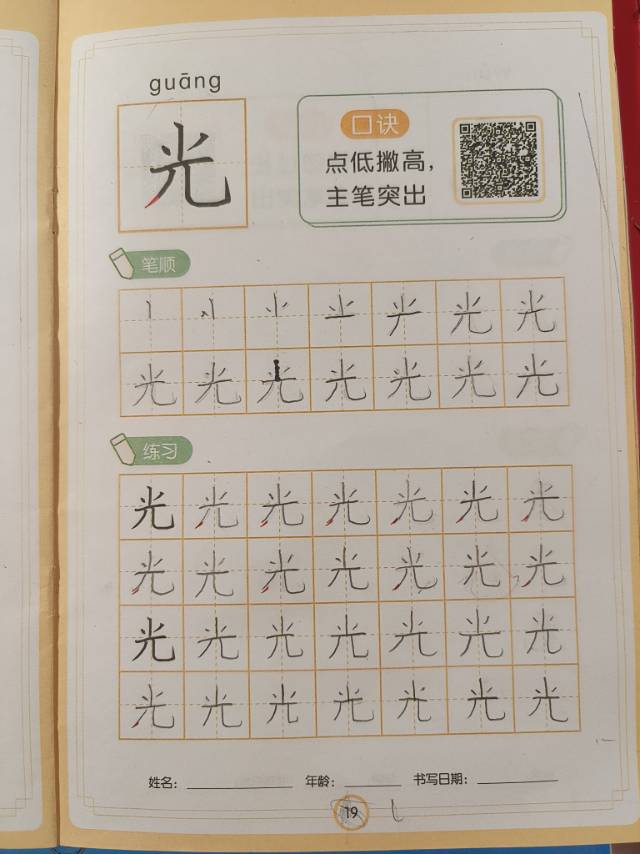 guāng
光
口诀
点低撇高，
主笔突出
笔顺
丨 丷 ⺌ 光 光
光 光 光 光 光 光 光
练习
光 光 光 光 光 光 光
光 光 光 光 光 光 光
光 光 光 光 光 光 光
光 光 光 光 光 光 光
姓名： 年龄： 书写日期：
19